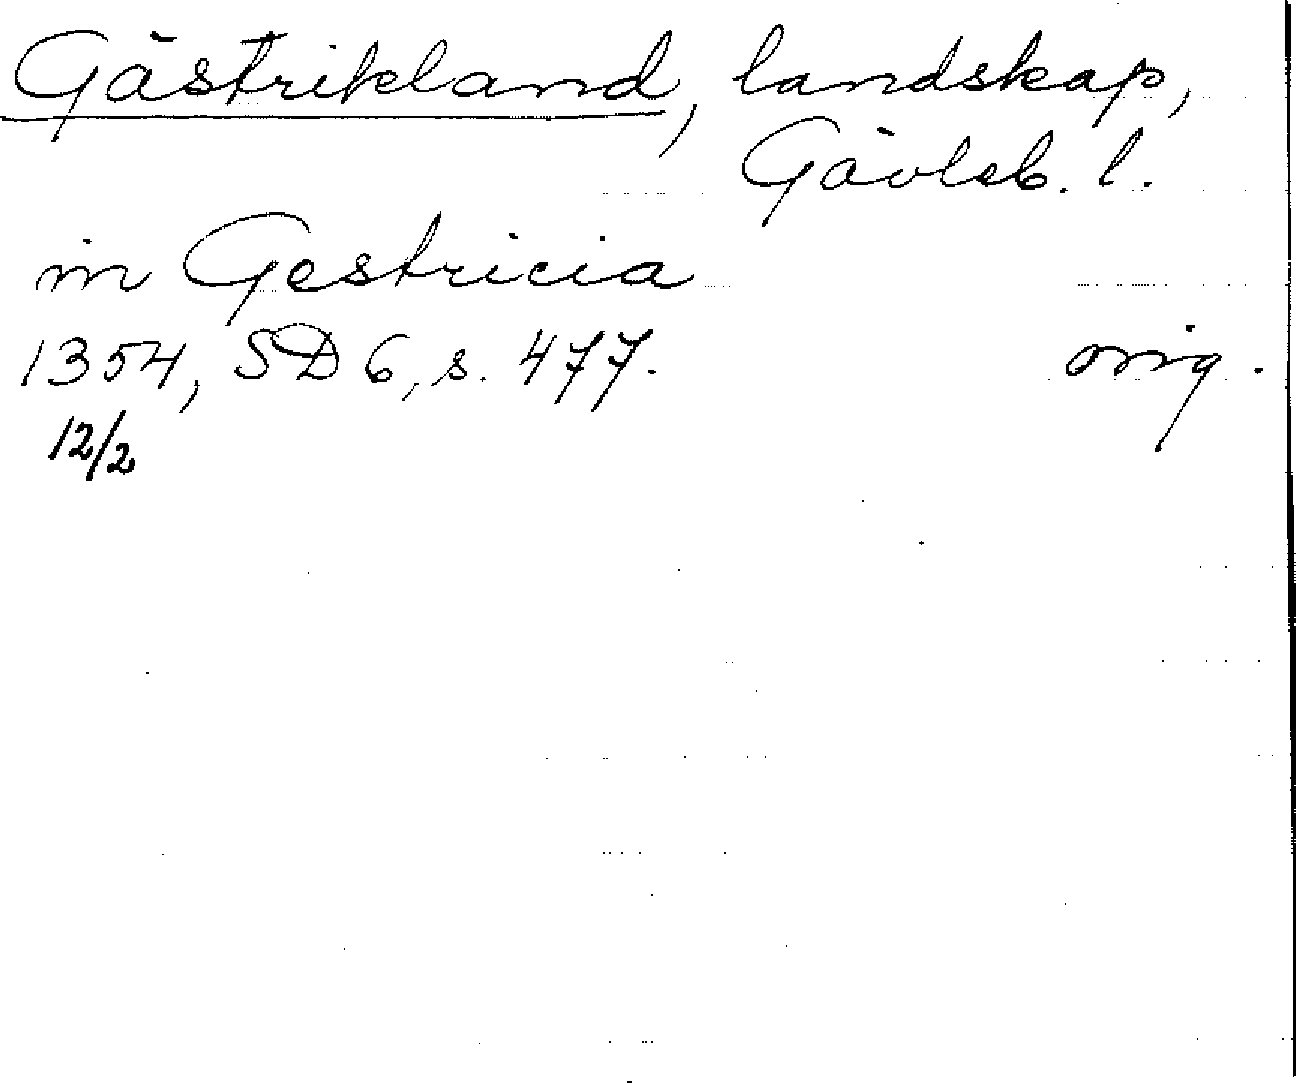 Gästrikland, landskap,
Gävleb. l.
in Gestricia
1354, SD 6, s. 477. orig.
12/2